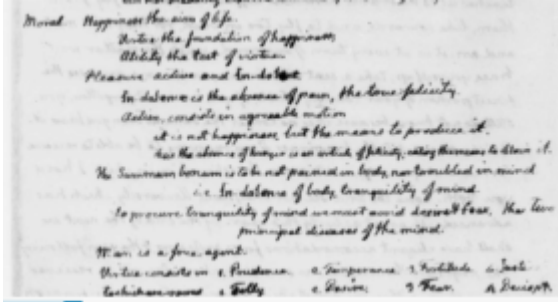 Moral. Happiness the aim of life.
Virtue the foundation of happiness,
Utility the test of virtue.
Pleasure active and In-dolent.
In-dolence is the absence of pain, the true felicity.
Active, consists in agreeable motion
it is not happiness, but the means to produce it.
thus the absence of hunger is an article of felicity, eating the means to obtain it.
The Summum bonum is to be not pained in body, nor troubled in mind
i.e. In-dolence of body, tranquility of mind
to procure tranquility of mind we must avoid desire & fear, the two
principal diseases of the mind.
Man is a free agent.
Virtue consists in 1. Prudence 2. Temperance 3. Fortitude 4. Justice
to which are 1. Folly 2. Desire 3 Fear 4 Deceit.